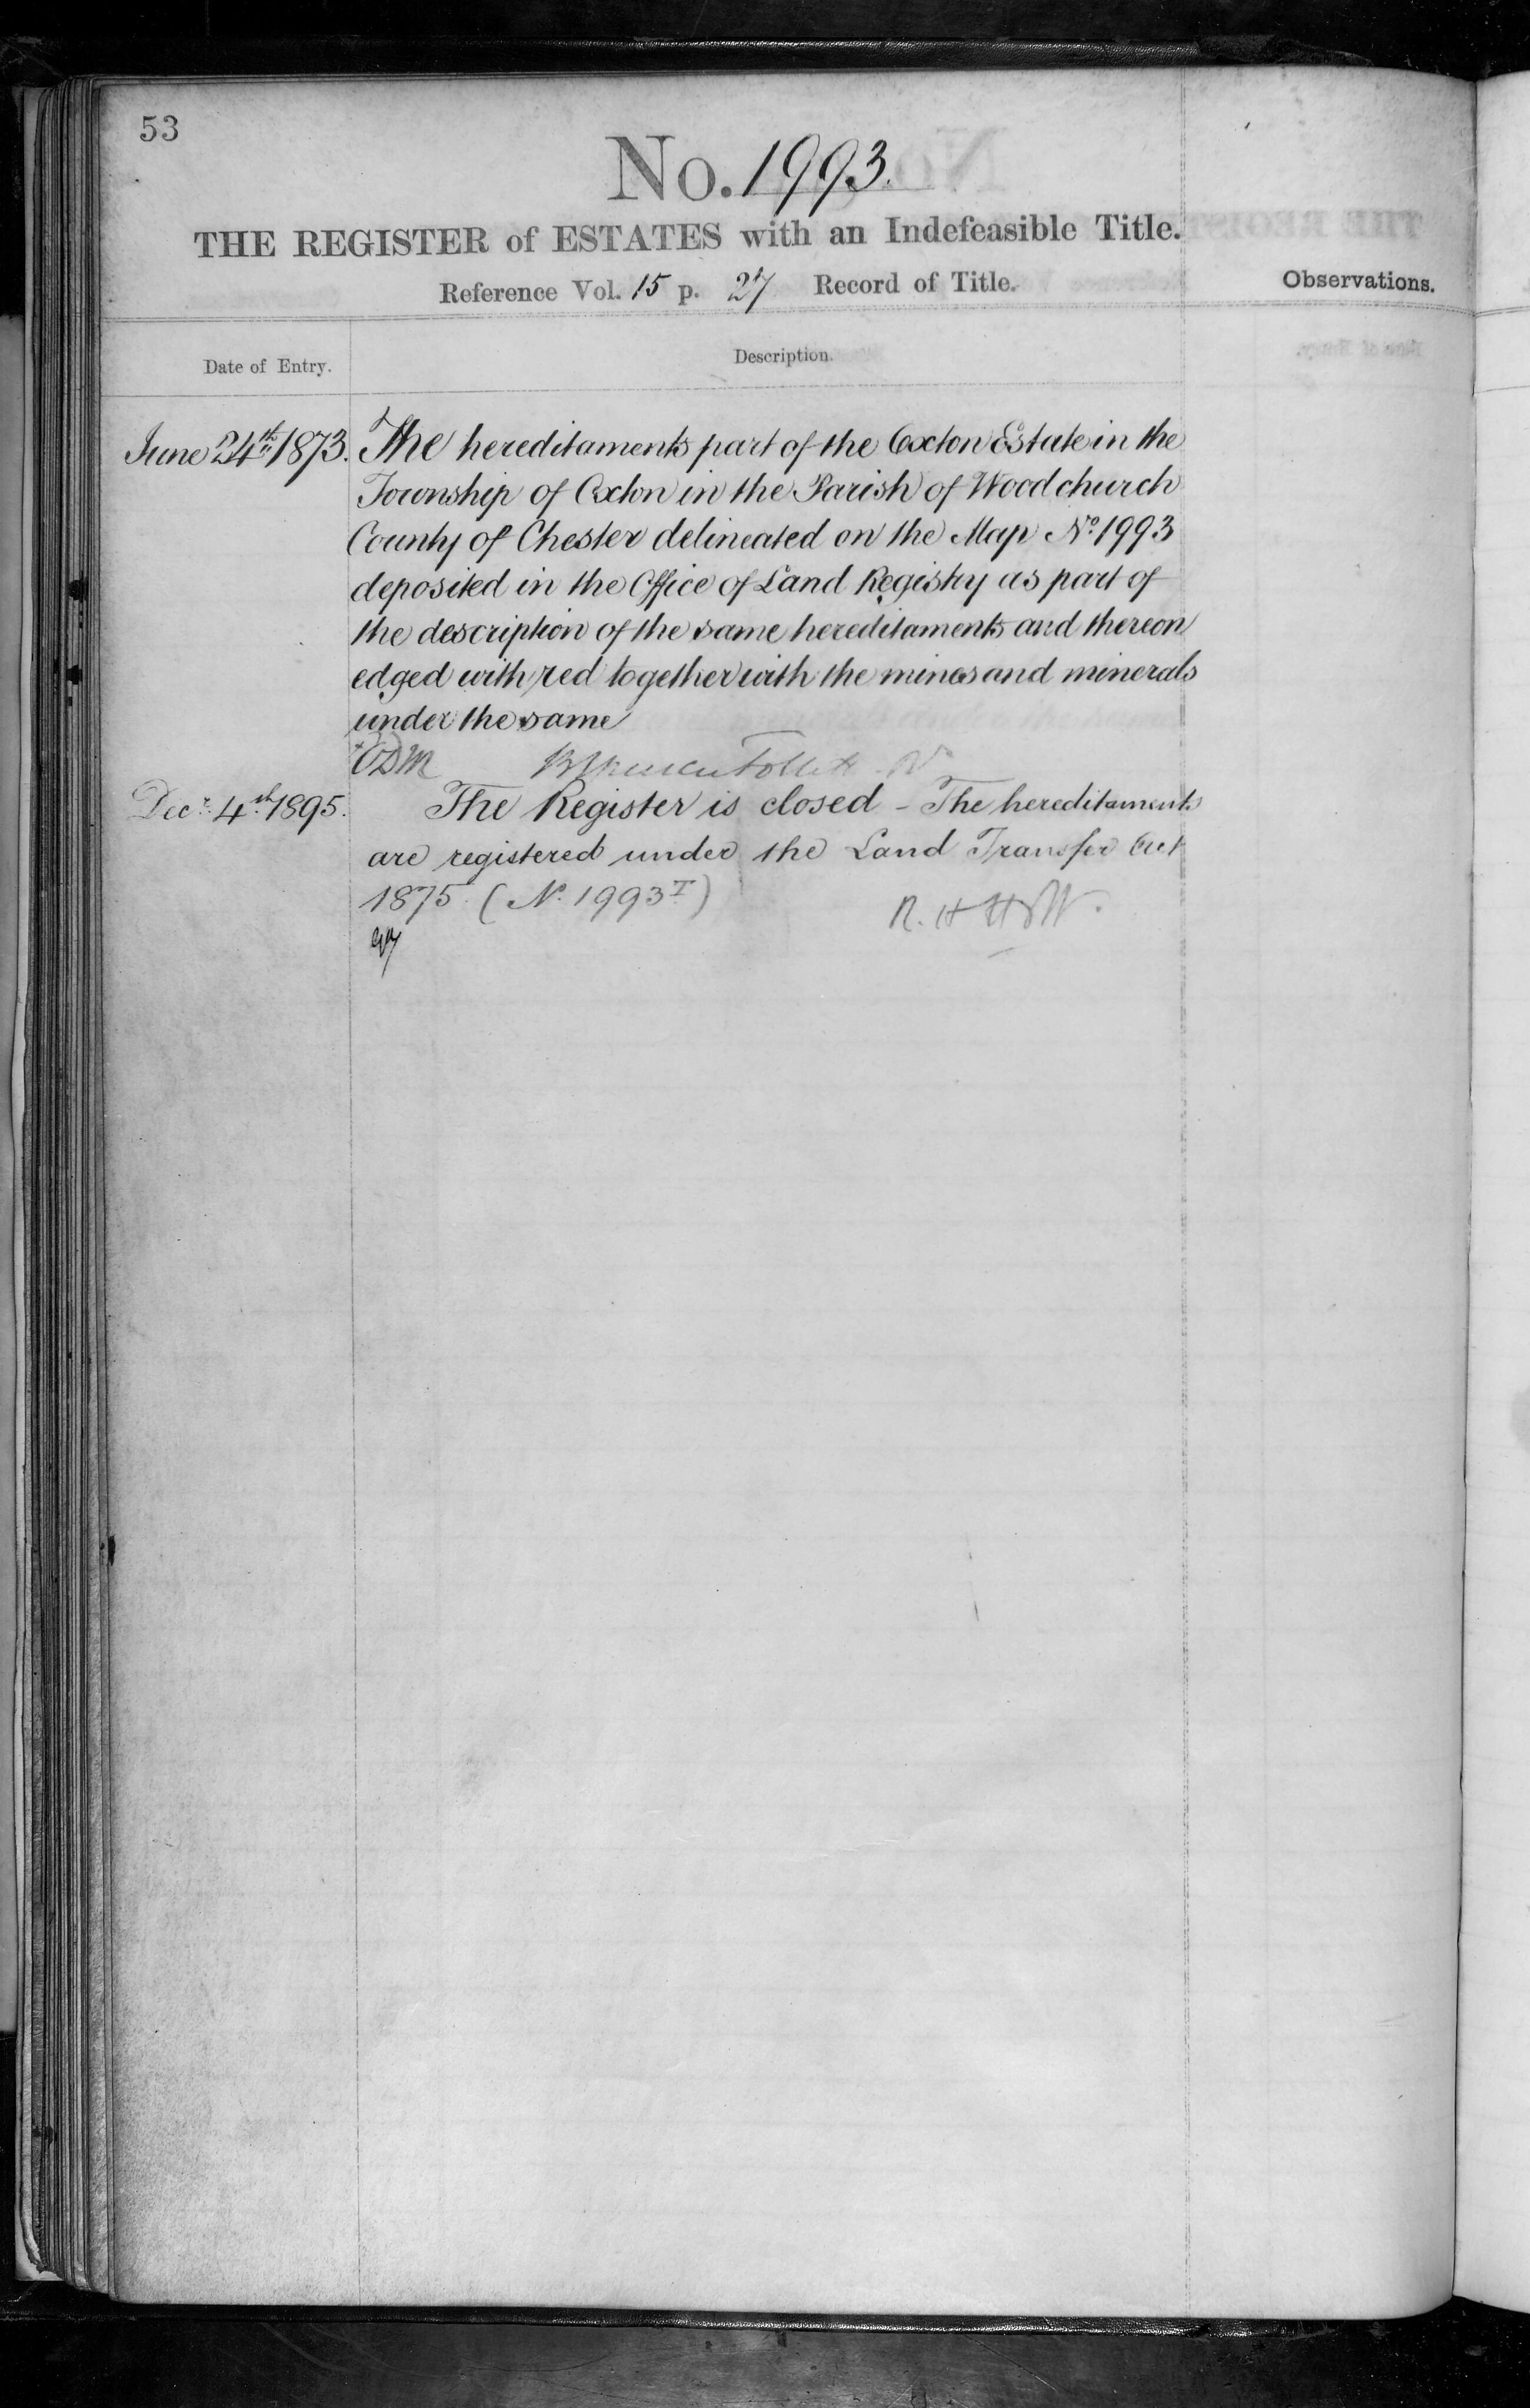 53
No. 1993.
THE REGISTER of ESTATES with an Indefeasible Title.
Reference Vol. 15 p. 27 Record of Title.
Observations.
Date of Entry.
Description.
June 24th 1873. The hereditaments part of the Oxton Estate in the
Township of Oxton in the Parish of Woodchurch
County of Chester delineated on the Map No. 1993
deposited in the Office of Land Registry as part of
the description of the same hereditaments and thereon
edged with red together with the mines and minerals
under the same
Follett
Decr. 4th 1895. The Register is closed - The hereditaments
are registered under the Land Transfer Act
1875. (No. 1993I)
R. H H